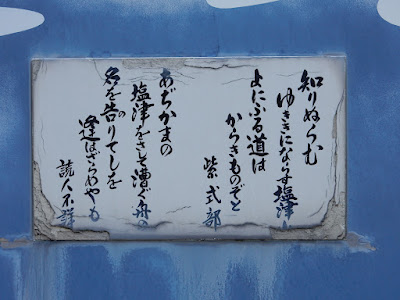 知りぬらむ
ゆききにならす塩津山
よにふる道は
からきものぞと
紫式部
あぢかまの
塩津をさして漕ぐ舟の
名を告りてしを
逢はざらめやも
読人不詳